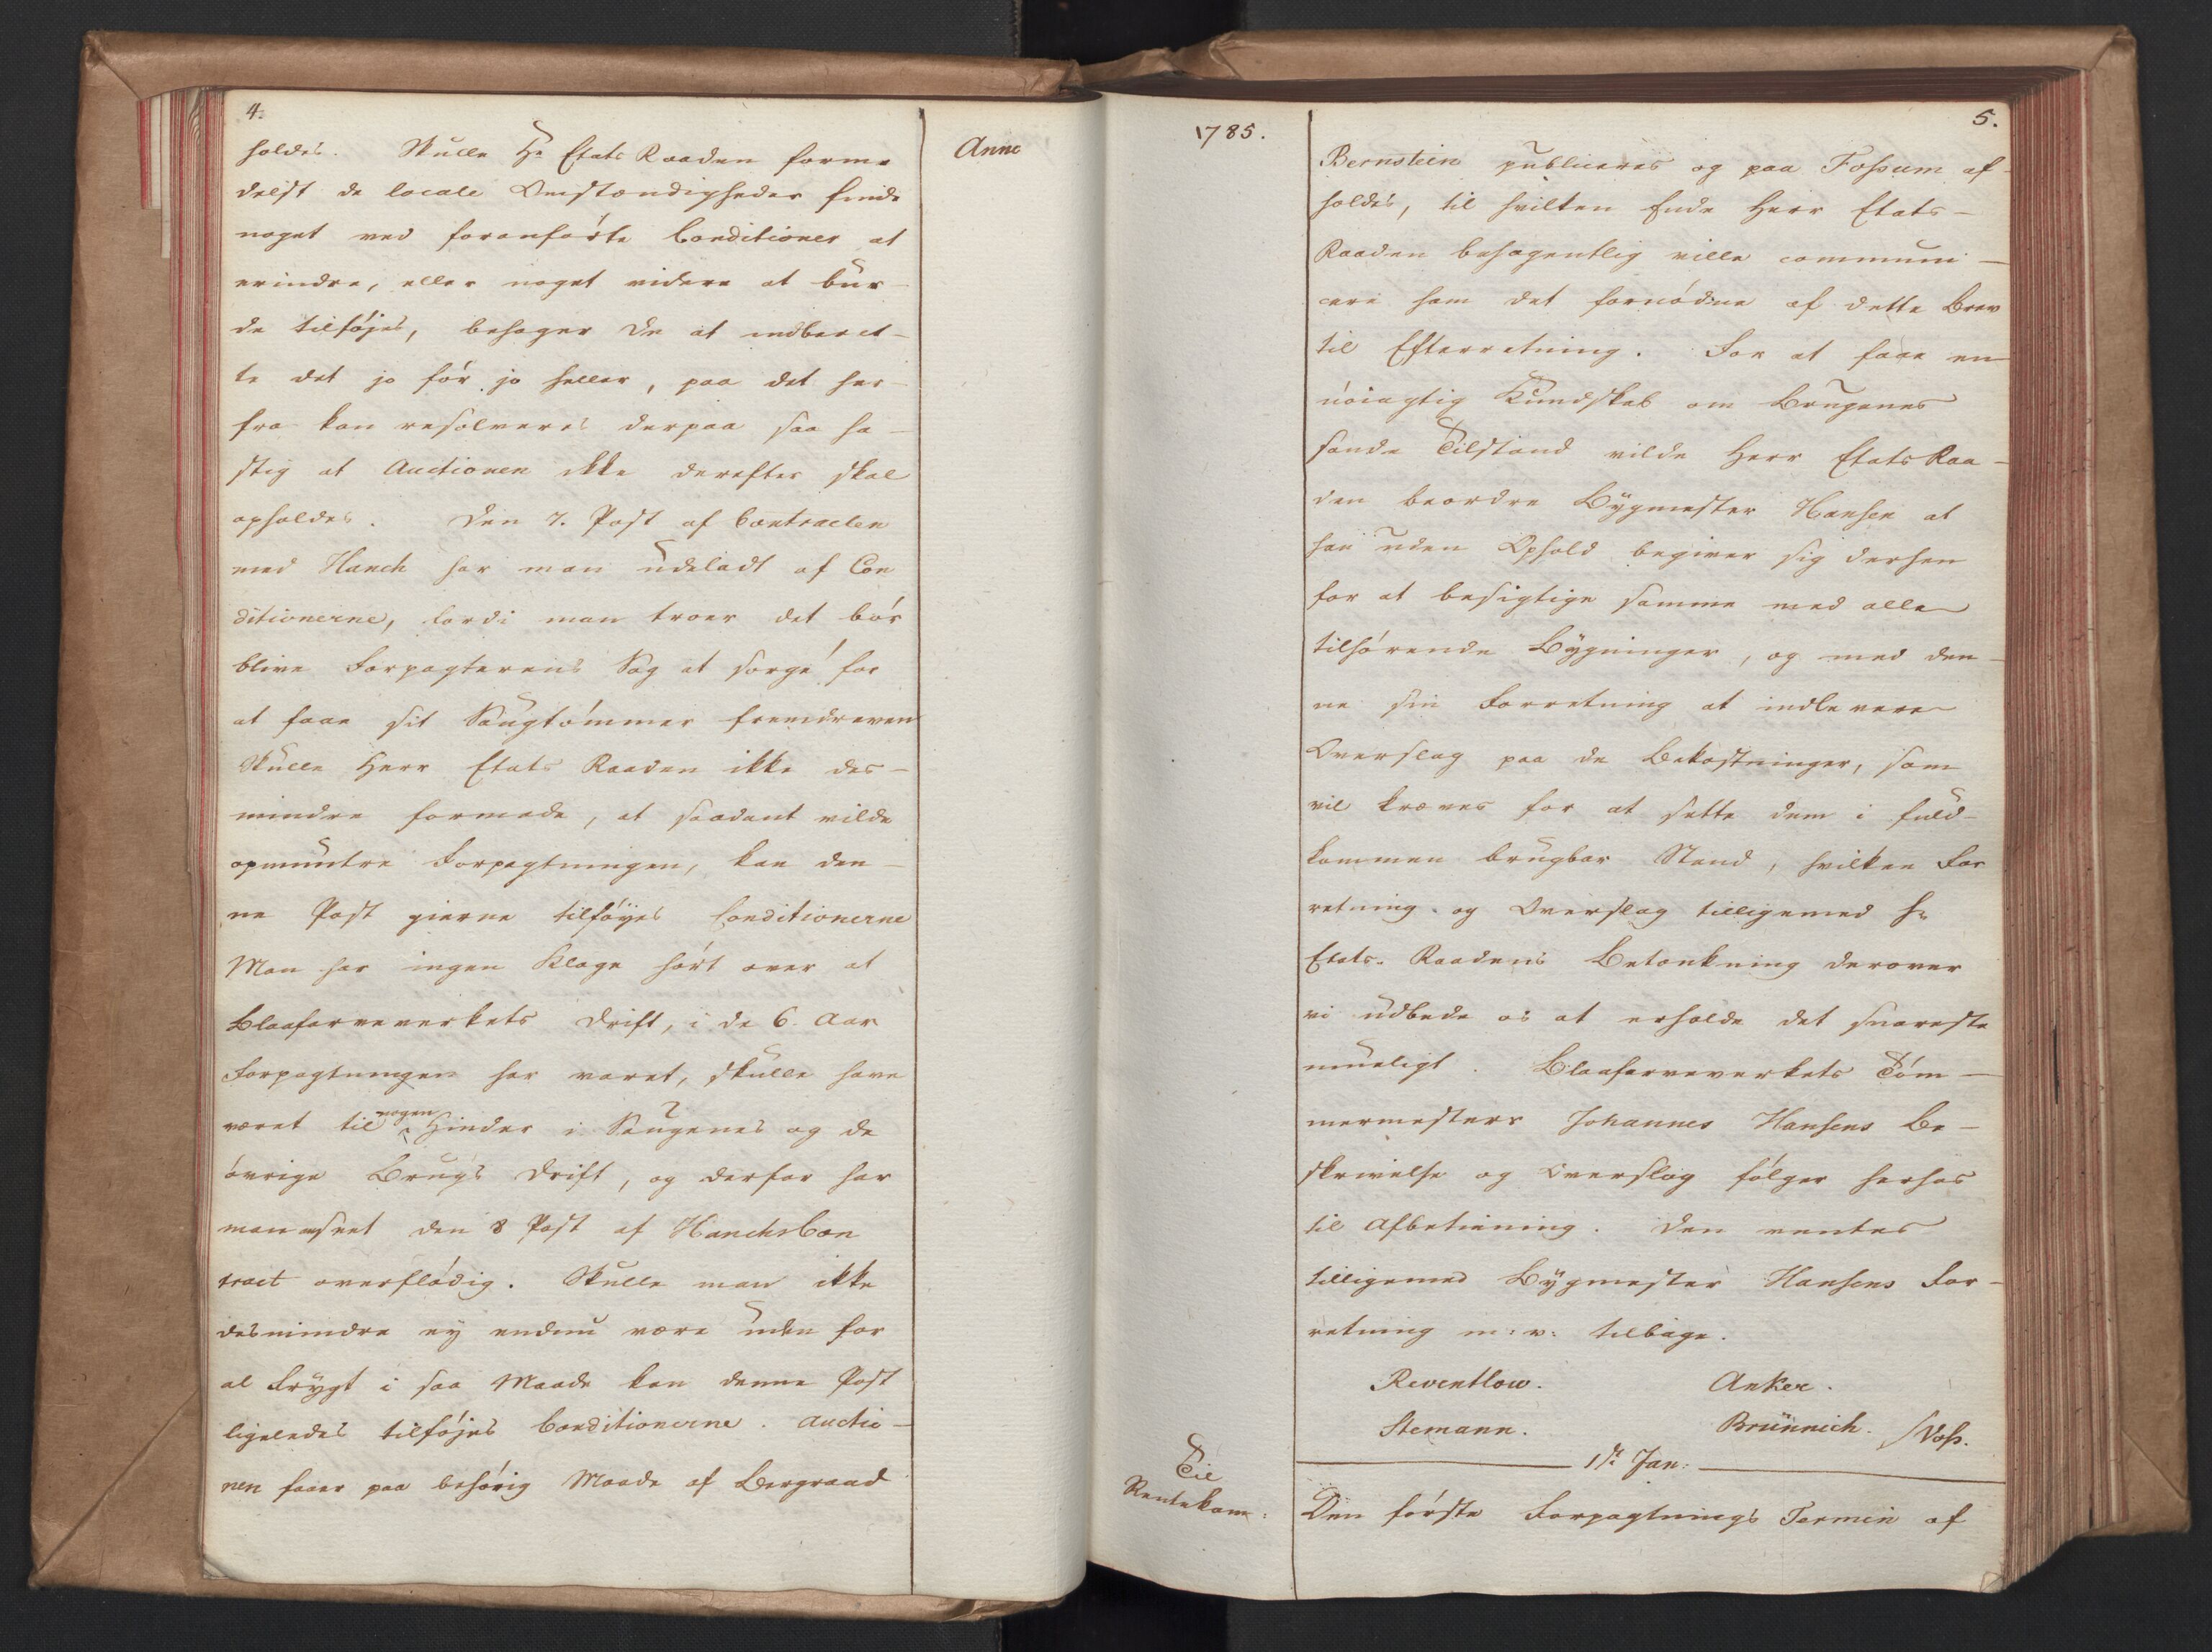 4.
holdes. Skulle Hr Etats Raaden forme
delst de locale Omstændigheder finde
noget ved foranførte Conditioner at
erindre, eller noget videre at bur-
de tilføjes, behager De at indberet-
te det jo før jo heller, paa det her-
fra kan resolveres derpaa saa ha-
stig at Auctionen ikke derefter skal
opholdes. Den 7. Post af Contracten
med Hanch har man udeladt af Con
ditionerne, fordi man troer det bør
blive Forpagterens Sag at sørge for
at faae sit Saugtømmer fremdreven
Skulle Herr Etats Raaden ikke des-
mindre formode, at saadant vilde
opmuntre Forpagtningen, kan den-
ne Post gierne tilføyes Conditionerne
Man har ingen Klage hørt over at
Blaafarveverkets Drift, i de 6. Aar
Forpagtningen har varet, skulle have
været til nogen Hinder i Saugenes og de
øvrige Brugs Drift, og derfor har
man anseet den 8 Post af Hanchs Con
tract overflødig. Skulle man ikke
desmindre ey endnu være uden for
al Frygt i saa Maade kan denne Post
ligeledes tilføjes Conditionerne. Auctio-
nen faaer paa behørig Maade af Bergraad
Anno
1785.
5.
Bernstein publiceres og paa Fossum af-
holdes, til hvilken Ende Herr Etats-
Raaden behagentlig ville communi-
cere ham det fornødne af dette Brev
til Efterretning. For at faae en
nøiagtig Kundskab om Brugenes
sande Tilstand vilde Herr Etats Raa-
den beordre Bygmester Hansen at
han uden Ophold begiver sig derhen
for at besigtige samme med alle
tilhørende Bygninger, og med den-
ne sin Forretning at indlevere
Overslag paa de Bekostninger, som
vil kræves for at sette dem i fuld-
kommen brugbar Stand, hvilken For
retning og Overslag tilligemed Hr
Etats-Raadens Betænkning derover
vi udbede os at erholde det snareste
mueligt. Blaafarveverkets Tøm-
mermesters Johannes Hansens Be-
skrivelse og Overslag følger herhos
til Afbetiening. Den ventes
tilligemed Bygmester Hansens For-
retning m: v: tilbage.
Reventlow. Anker.
Stemann. Brünnich. /Voss.
1ste Jan:
Til
Rentekam:
Den første Forpagtnings Termin af